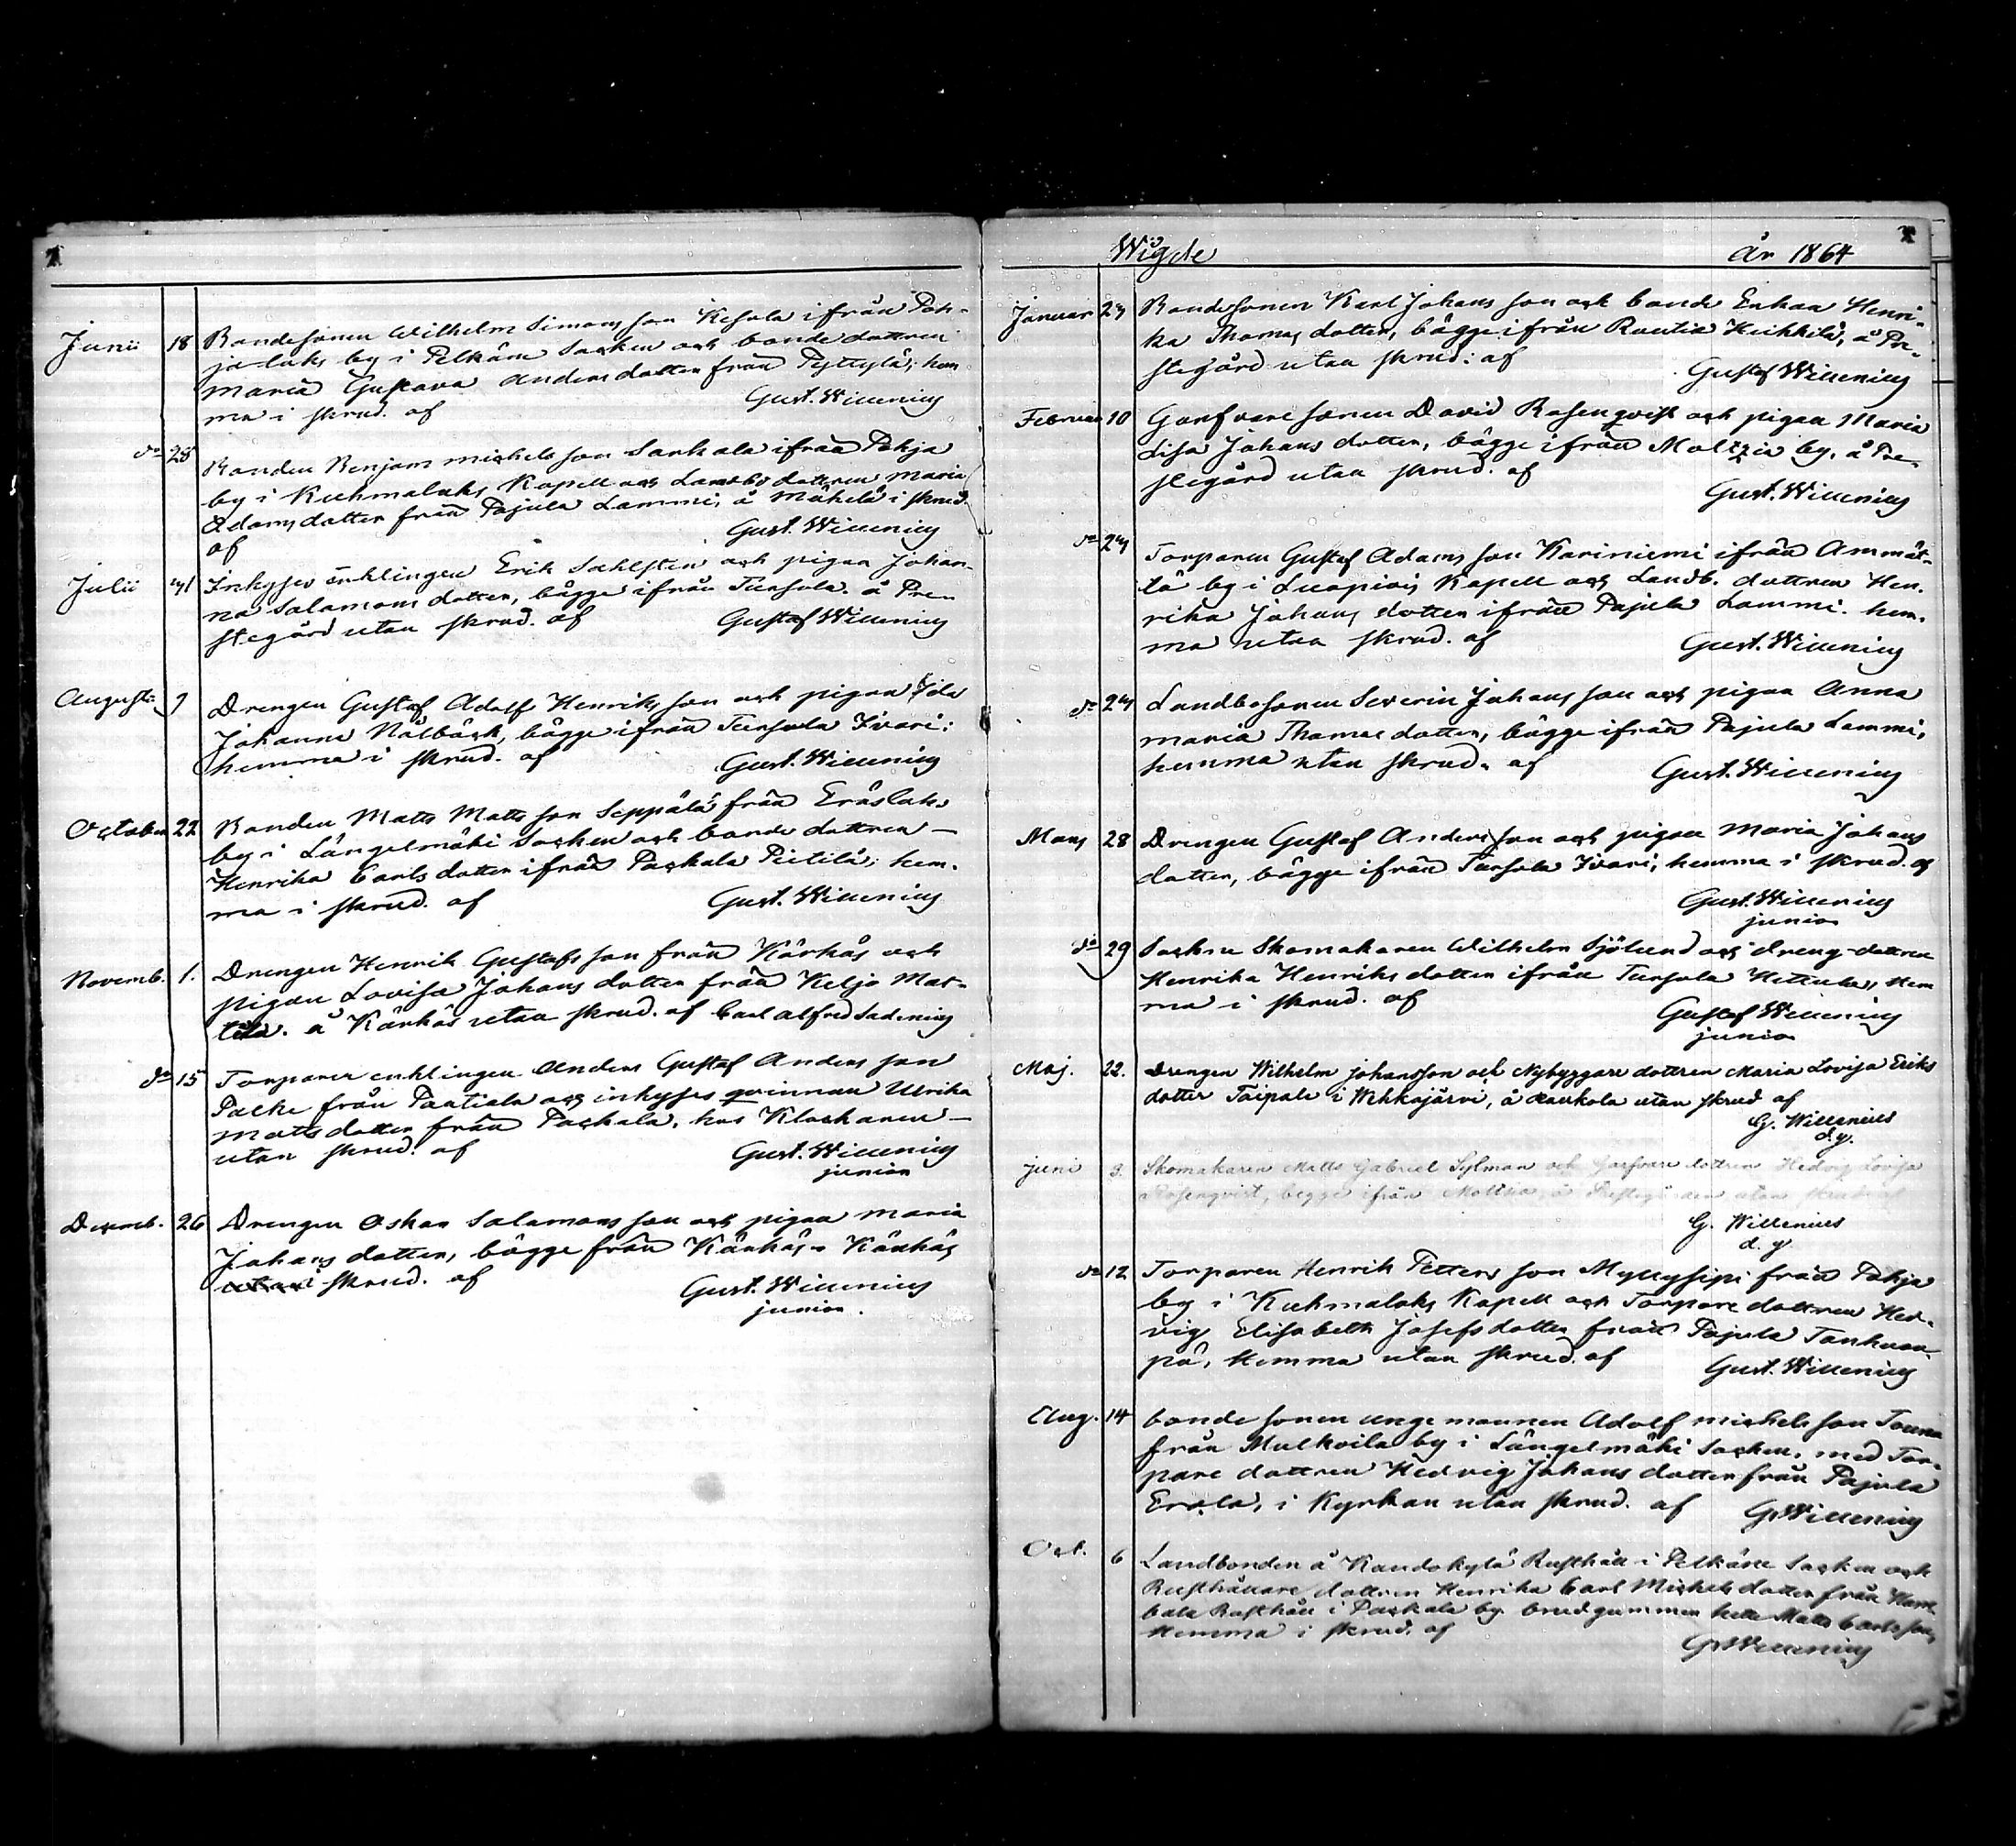 Junii 18 Bondesonen Wilhelm Simons son Kesola ifrån Poh-
jalaks by i Pelkäne Socken och bonde dottren
Maria Gustava Anders dotter från Pyttylä; hem
ma i skrud. af Gust. Willenius
do 28 Bonden Benjam michels son Sarkala ifrån Pohja
by i Kuhmalaks Kapell och Landbo dottren Maria
Adams dotter från Pajula Lammi, å Mäkelä i skrud.
af Gust. Willenius
Julii Inhyses enklingen Erik Sahlsten och pigan Johan-
na Salamons dotter, bägge ifrån Tursola. å Pre-
stegård utan skrud. af Gustaf Willenius
Augusti 7 Drengen Gustaf Adolf Henriks son och pigan Ida
Johanna Nälbäck, bägge ifrån Tursola Iivari:
hemma i skrud. af Gust. Willenius
October 22 Bonden Matts Matts son Seppälä från Eräslaks
by i Längelmäki Socken och bonde dottren —
Henrika Carls dotter ifrån Packala Pietilä; hem-
ma i skrud. af Gust. Willenius
Novemb. 1. Drengen Henrik Gustafs son från Kärkäs och
pigan Lovisa Johans dotter från Keljo Mat-
tila. å Kärkäs utan skrud. af Carl Alfred Sadenius
do 15 Torpare enklingen Anders Gustaf Anders son
Palke från Pantiala och inhyses qvinnan Ulrika
Matts dotter från Packala, hos Klockaren —
utan skrud. af Gust. Willenius
junior
Decemb. 26 Drengen Oskar Salamons son och pigan Maria
Johans dotter, bägge från Kärkäs, Kärkäs
i skrud. af Gust. Willenius
junior.
Wigde år 1864
Januar 24 Bondesonen Karl Johans son och bonde Enkan Henri-
ka Thomas dotter, bägge ifrån Rautia Heikkilä, å Pre-
stegård utan skrud: af Gustaf Willenius
Februar 10 Garfvare sonen David Rosenqvist och pigan Maria
Lisa Johans dotter, bägge ifrån Moltzia by, å Pre-
stegård utan skrud. af Gust. Willenius
do 24 Torparen Gustaf Adams son Kariniemi ifrån Ammät-
lä by i Luopiois Kapell och Landb. dottren Hen-
rika Johans dotter ifrån Pajula Lammi. hem-
ma utan skrud. af Gust. Willenius
do 24 Landbosonen Severin Johans son och pigan Anna
Maria Thomas dotter, bägge ifrån Pajula Lammi,
hemma utan skrud. af Gust. Willenius
Mars 28 Drengen Gustaf Anders son och pigan Maria Johans
dotter, bägge ifrån Tursola Iivari, hemma i skrud. af
Gust. Willenius
junior
do 29 Sockne Skomakaren Wilhelm Sjölund och dreng-dottren
Henrika Henriks dotter ifrån Tursola Hettula, hem
ma i skrud. af Gustaf Willenius
junior
Maj. 22. Drengen Wilhelm Johansson och Nybyggare dottren Maria Lovisa Eriks
dotter Taipale i Wehkajärvi, å utan skrud af
G. Willenius
d. y.
juni 3. Skomakaren Matts Gabriel Sylman och Garfvare dottren Hedvig Lovisa
Rosenqvist, begge ifrån Moltsia, å Prestegården utan skrud af
G. Willenius
d. y.
do 12 Torparen Henrik Petters son Myllysipi från Pohja
by i Kuhmalaks Kapell och Torpare dottren Hed-
vig Elisabeth Josefs dotter från Pajula Tanhuan-
pä, Hemma utan skrud. af Gust. Willenius
Aug. 14 bonde sonen unge mannen Adolf michels son
från Mulkoila by i Längelmäki Socken, med Tor-
pare dottren Hedvig Johans dotter från Pajula
Erola, i Kyrkan utan skrud. af G. Willenius
Oct. 6 Landbonden å Kandokylä Rusthåll i Pelkäne Socken och
Rusthållare dottren Henrika Carl Michels dotter från
Rusthåll i Packala by. brudgummen hette Matts Carlsson,
Hemma i skrud. af G. Willenius